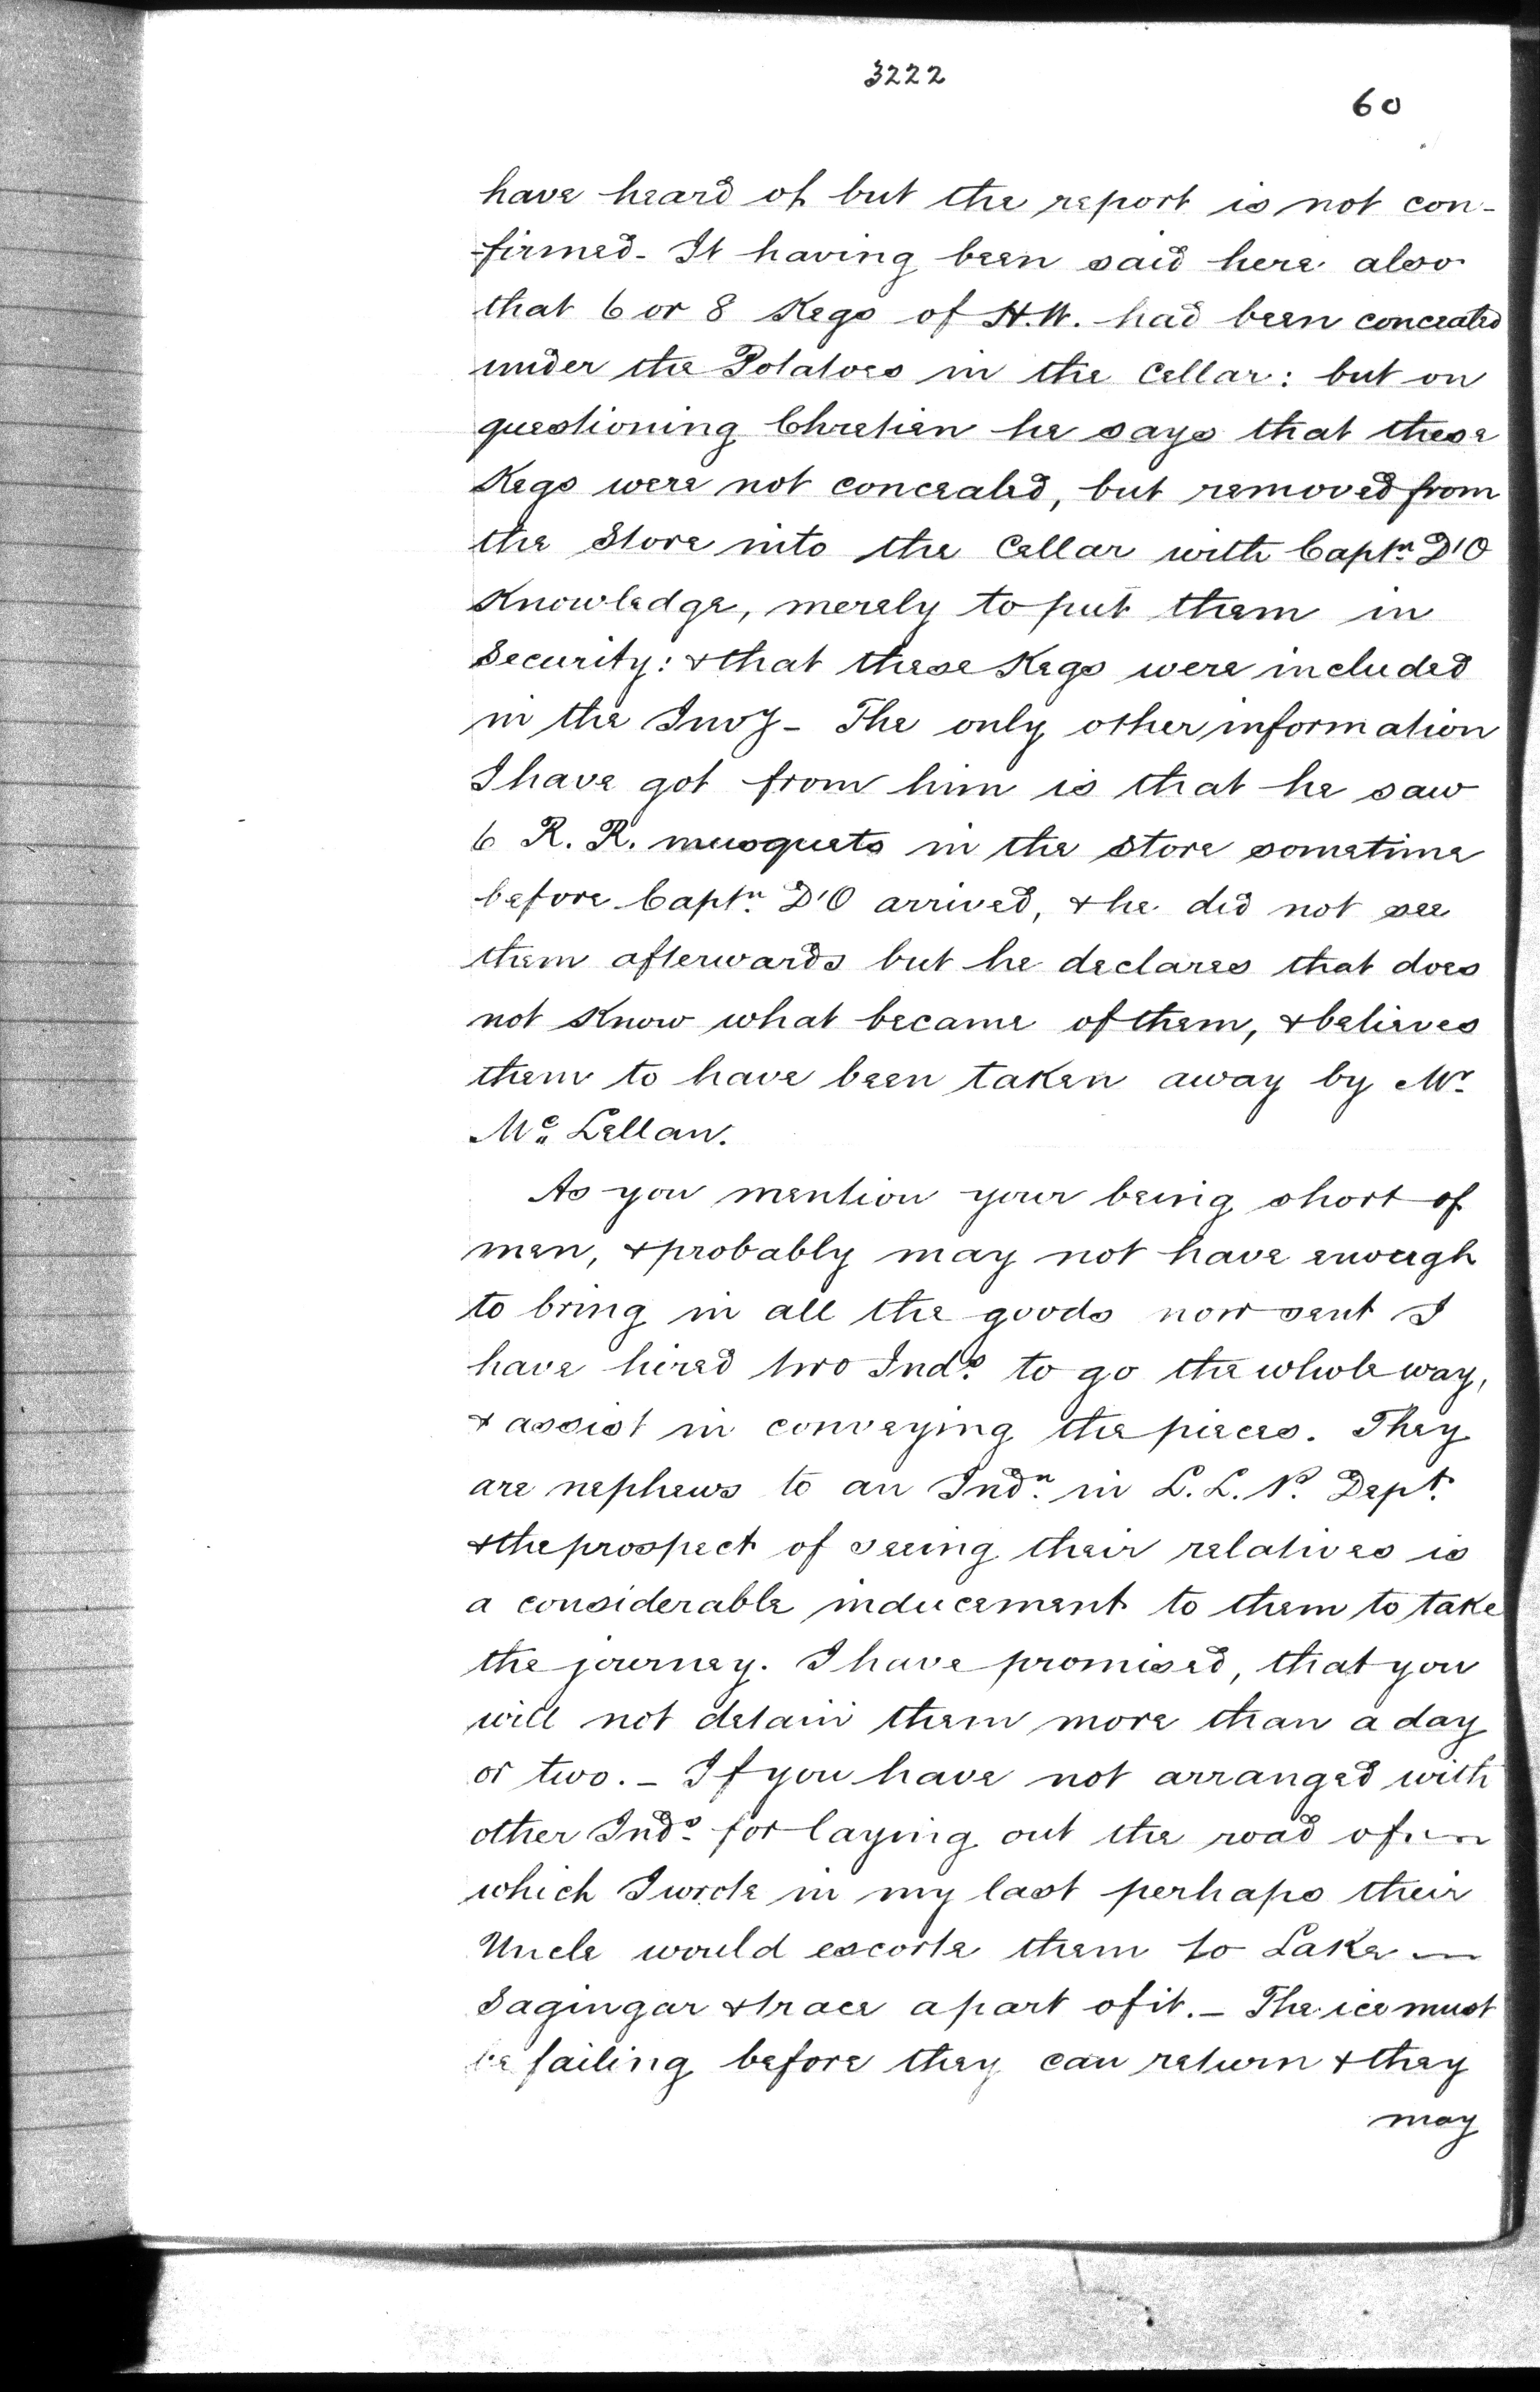 3222
60
have heard of but the report is not con-
-firmed - It having been said here also
that 6 or 8 Kegs of H.W. had been concealed
under the Potatoes in the Cellar: but on
questioning Chretien he says that these
Kegs were not concealed, but removed from
the Store into the Cellar with Captn. D'O
Knowledge, merely to put them in
Security: & that these Kegs were included
in the Invy - The only other information
I have got from him is that he saw
6 R. R. musquets in the store sometime
before Captn. D'O arrived, & he did not see
them afterwards but he declares that does
not Know what became of them, & believes
them to have been taken away by Mr.
Mc. Lellan.
As you mention your being short of
men, & probably may not have enough
to bring in all the goods now sent I
have hired two Inds. to go the whole way,
& assist in conveying the pieces. They
are nephews to an Indn. in L. L. P. Dept.
& the prospect of seeing their relatives is
a considerable inducement to them to take
the journey. I have promised, that you
will not detain them more than a day
or two. - If you have not arranged with
other Inds. for laying out the road of
which I wrote in my last perhaps their
Uncle would escorte them to Lake
Sagingar & trace a part of it. - The ice must
be failing before they can return & they
may